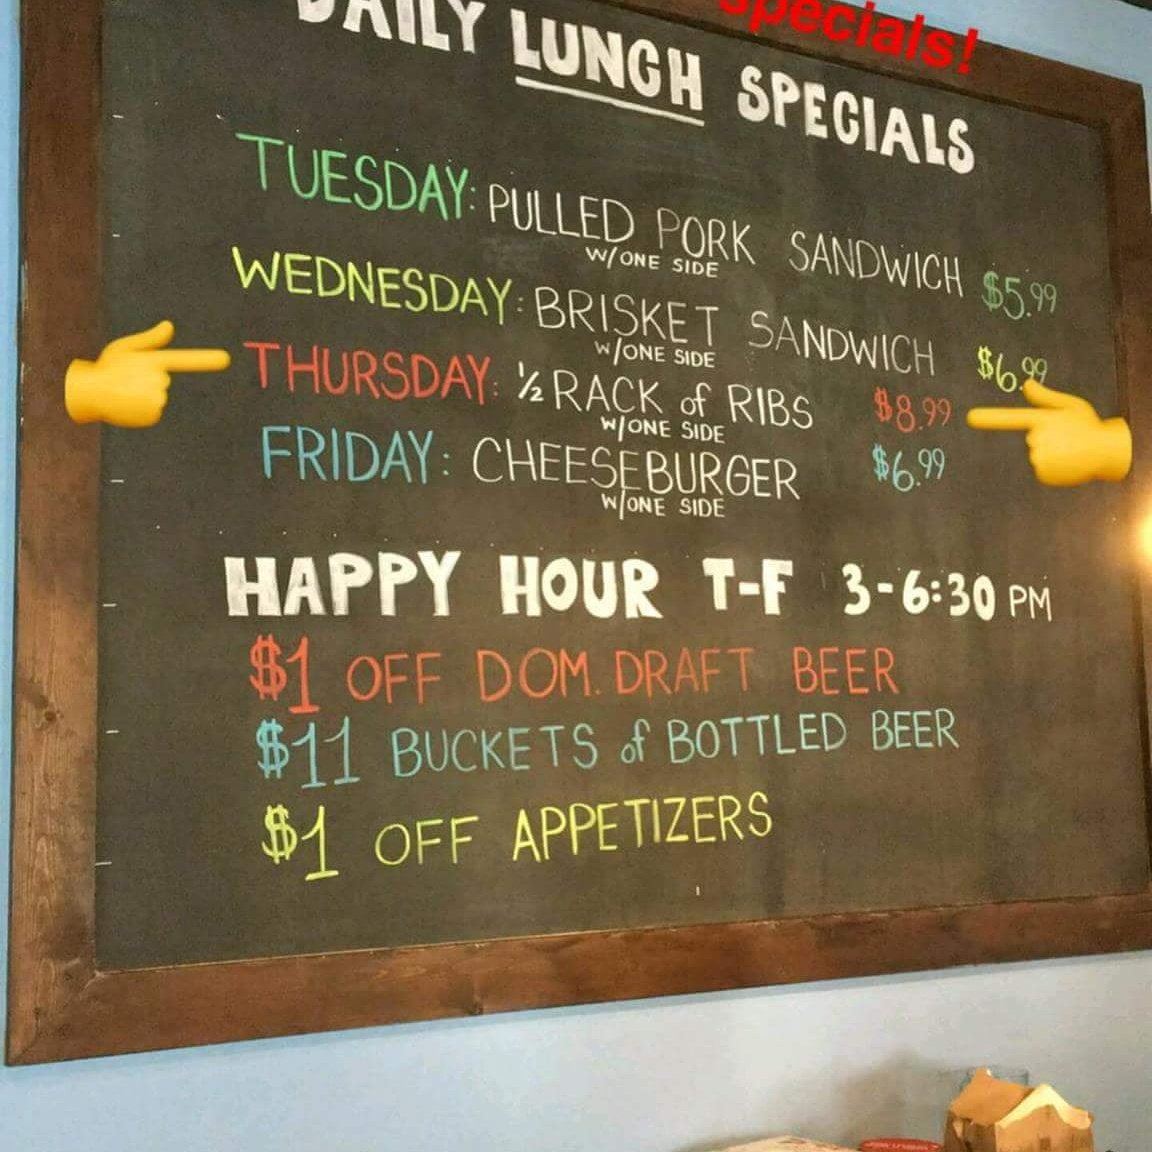 specials!
DAILY LUNCH SPECIALS
TUESDAY: PULLED PORK SANDWICH $5.99
W/ONE SIDE
WEDNESDAY: BRISKET SANDWICH $6.99
W/ONE SIDE
THURSDAY: ½ RACK of RIBS $8.99
W/ONE SIDE
FRIDAY: CHEESEBURGER $6.99
W/ONE SIDE
HAPPY HOUR T-F 3-6:30 PM
$1 OFF DOM. DRAFT BEER
$11 BUCKETS of BOTTLED BEER
$1 OFF APPETIZERS